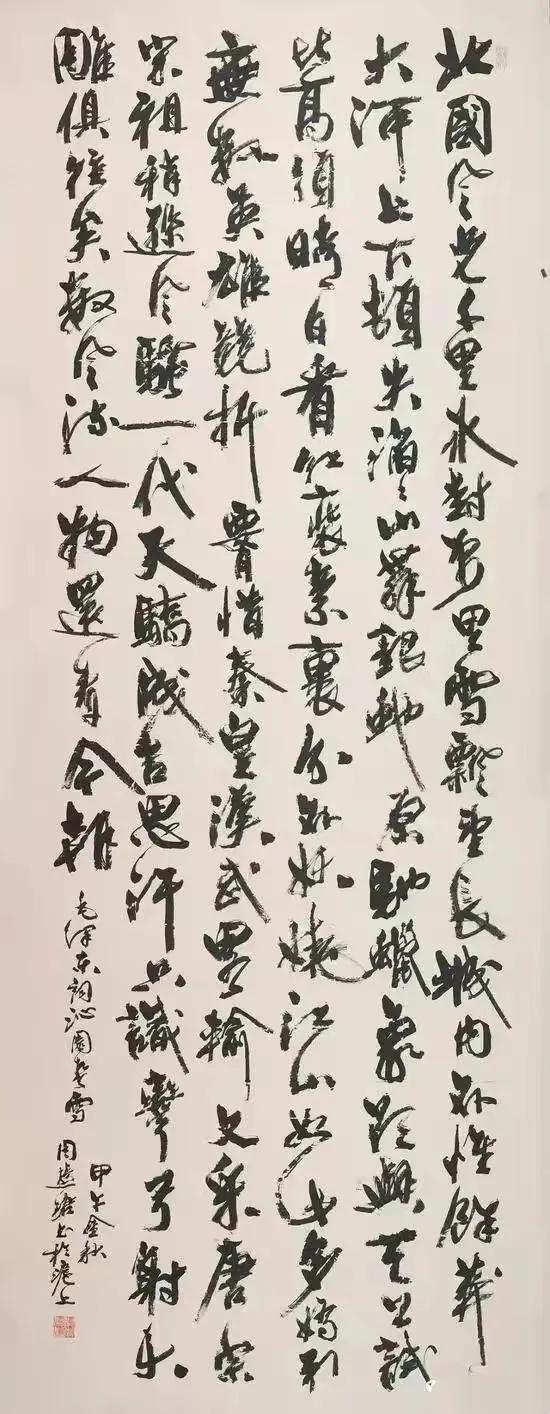 北國风光千里冰封萬里雪飄望長城内外惟餘莽
大河上下頓失滔〻山舞銀蛇原馳蠟象欲與天公試
比高須晴日看红裝素裹分外妖嬈江山如此多嬌引
無數英雄競折腰惜秦皇漢武畧輸文采唐宗
宋祖稍遜风騷一代天驕成吉思汗只識彎弓射大
雕俱往矣數风流人物還看今朝
毛泽东詞沁園春雪
甲午金秋
周慧珺书於滬上